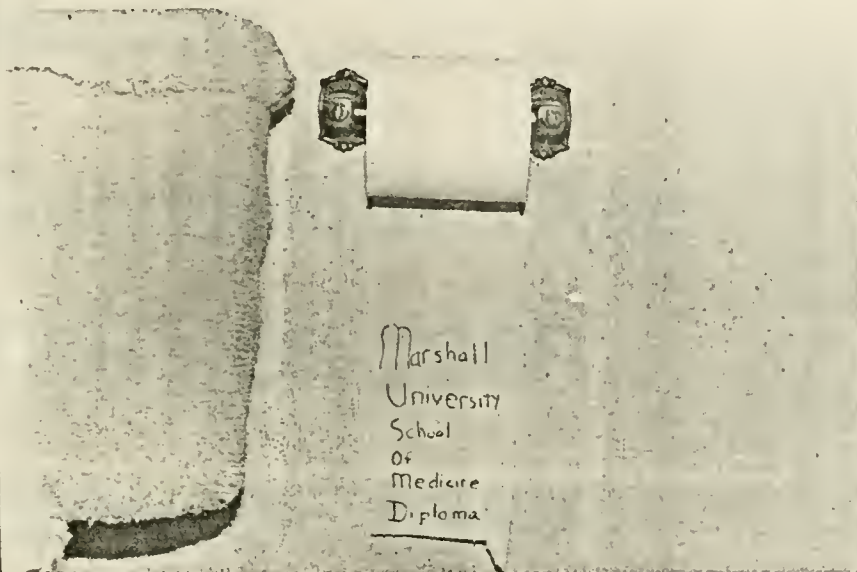 Marshall
University
School
Of
Medicine
Diploma